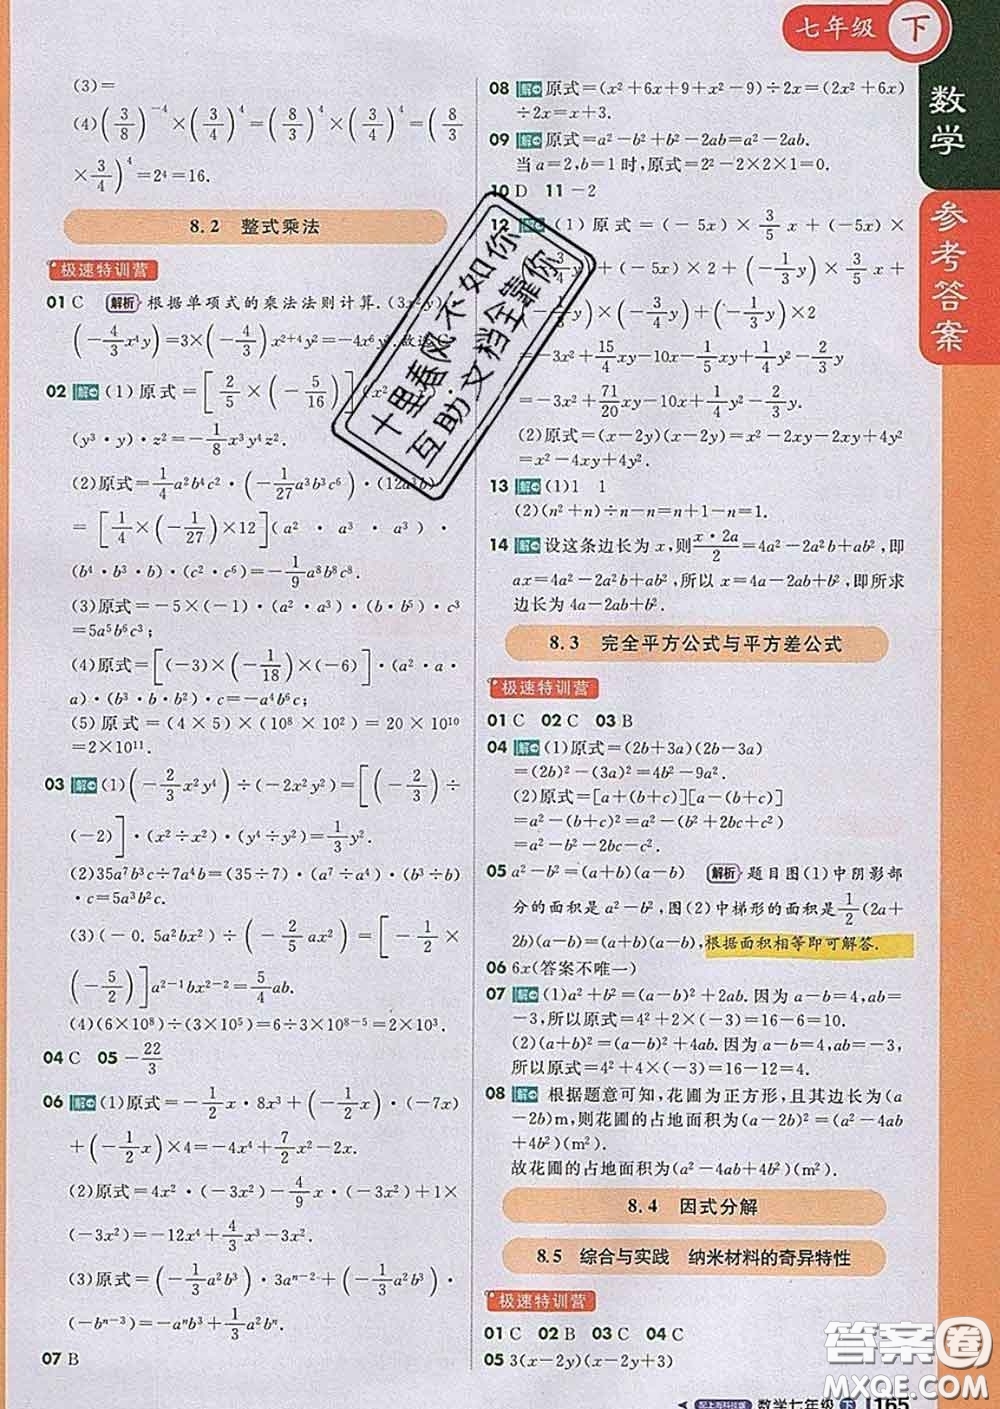 七年级 下
数学
参考答案
(3)=
(4)(3/8)^{-4}×(3/4)^4=(8/3)^4×(3/4)^4=(8/3
×3/4)^4=2^4=16.
8.2 整式乘法
极速特训营
01 C 解析 根据单项式的乘法法则计算.(3x²y)
(-4/3x⁴y)=3×(-4/3)x^{2+4}y^{1+1}=-4x⁶y².故选C.
02 解 (1)原式=[2/5×(-5/16)](x²
(y³·y)·z²=-1/8x³y⁴z².
(2)原式=1/4a²b⁴c²·(-1/27a³b³c⁶)·(12a³b)
=[1/4×(-1/27)×12](a²·a³·a³)·
(b⁴·b³·b)·(c²·c⁶)=-1/9a⁸b⁸c⁸.
(3)原式=-5×(-1)·(a²·a³)·(b·b⁵)·c³
=5a⁵b⁶c³;
(4)原式=[(-3)×(-1/18)×(-6)]·(a²·a·
a)·(b³·b³)·c=-a⁴b⁶c;
(5)原式=(4×5)×(10⁸×10²)=20×10¹⁰
=2×10¹¹.
03 解 (1)(-2/3x²y⁴)÷(-2x²y²)=[(-2/3)÷
(-2)]·(x²÷x²)·(y⁴÷y²)=1/3y².
(2)35a⁷b³c÷7a⁴b=(35÷7)·(a⁷÷a⁴)·(b³÷b)·
c=5a³b²c.
(3)(-0.5a²bx²)÷(-2/5ax²)=[(-1/2)×
(-5/2)]a^{2-1}bx^{2-2}=5/4ab.
(4)(6×10⁸)÷(3×10⁵)=6÷3×10^{8-5}=2×10³.
04 C 05 -22/3
06 解 (1)原式=-1/2x·8x³+(-1/2x)·(-7x)
+(-1/2x)×4=-4x⁴+7/2x²-2x.
(2)原式=4x²·(-3x²)-4/9x·(-3x²)+1×
(-3x²)=-12x⁴+4/3x³-3x².
(3)原式=(-1/3a²b³)·3a^{n-2}+(-1/3a²b³)·
(-b^{n-3})=-aⁿb³+1/3a²bⁿ.
07 B
08 解 原式=(x²+6x+9+x²-9)÷2x=(2x²+6x)
÷2x=x+3.
09 解 原式=a²-b²+b²-2ab=a²-2ab.
当a=2,b=1时,原式=2²-2×2×1=0.
10 D 11 -2
12 解 (1)原式=(-5x)×3/5x+(-5x)×
+(-5x)×2+
×2
=-3x²+15/4xy-10x-1/3xy+
=-3x²+71/20xy-10x-1/4y²+2/3y.
(2)原式=(x-2y)(x-2y)=x²-2xy-2xy+4y²
=x²-4xy+4y².
13 解 (1)1 1
(2)(n²+n)÷n-n=n+1-n=1.
14 解 设这条边长为x,则x·2a/2=4a²-2a²b+ab²,即
ax=4a²-2a²b+ab²,所以x=4a-2ab+b²,即所求
边长为4a-2ab+b².
8.3 完全平方公式与平方差公式
极速特训营
01 C 02 C 03 B
04 解 (1)原式=(2b+3a)(2b-3a)
=(2b)²-(3a)²=4b²-9a².
(2)原式=[a+(b+c)][a-(b+c)]
=a²-(b+c)²=a²-(b²+2bc+c²)
=a²-b²-2bc-c².
05 a²-b²=(a+b)(a-b) 解析 题目图(1)中阴影部
分的面积是a²-b²,图(2)中梯形的面积是1/2(2a+
2b)(a-b)=(a+b)(a-b),根据面积相等即可解答.
06 6x(答案不唯一)
07 解 (1)a²+b²=(a-b)²+2ab.因为a-b=4,ab=
-3,所以原式=4²+2×(-3)=16-6=10.
(2)(a+b)²=(a-b)²+4ab.因为a-b=4,ab=-3,
所以原式=4²+4×(-3)=16-12=4.
08 解 根据题意可知,花圃为正方形,且其边长为(a
-2b)m,则花圃的占地面积为(a-2b)²=(a²-4ab
+4b²)(m²).
故花圃的占地面积为(a²-4ab+4b²)(m²).
8.4 因式分解
8.5 综合与实践 纳米材料的奇异特性
极速特训营
01 C 02 B 03 C 04 C
05 3(x-2y)(x-2y+3)
十里春风不如你
互助文档全靠你
答案圈
MXQE.COM
配上海科技版 数学七年级 下 165